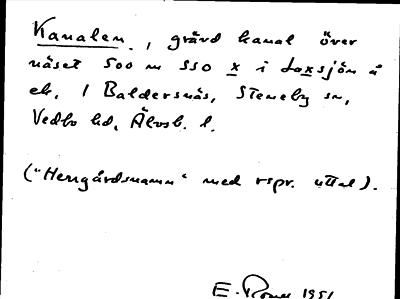 Kanalen, grävd kanal över
näset 500 m SSO x i Laxsjön å
ek. 1 Baldersnäs, Steneby sn,
Vedbo hd, Älvsb. l.
("Herrgårdsnamn" med rspr. uttal).
E. 1951